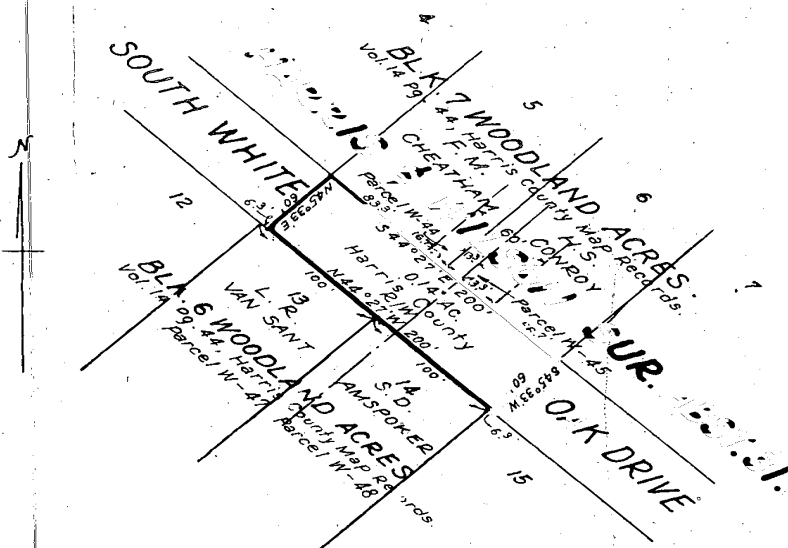 N
SOUTH WHITE
O.K DRIVE
4
BLK. 7 WOODLAND ACRES.
Vol. 14 Pg. 44, Harris County Map Records.
5
6
7
F. M.
CHEATHAM
Parcel W-44
H.S.
CONROY
Parcel W-45
60'
83.3
133
133
66.7
S 44°27' E 200'
0.14 Ac.
Harris County
R/W
N44°27'W 200'
N45°33'E
60'
6.3
100
100'
S45°33'W
60'
6.3
12
13
L. R.
VAN SANT
BLK. 6 WOODLAND ACRES
Vol. 14 pg. 44, Harris County Map Re rds.
Parcel W-47
14
S. D.
AMSPOKER
Parcel W-48
15
UR.